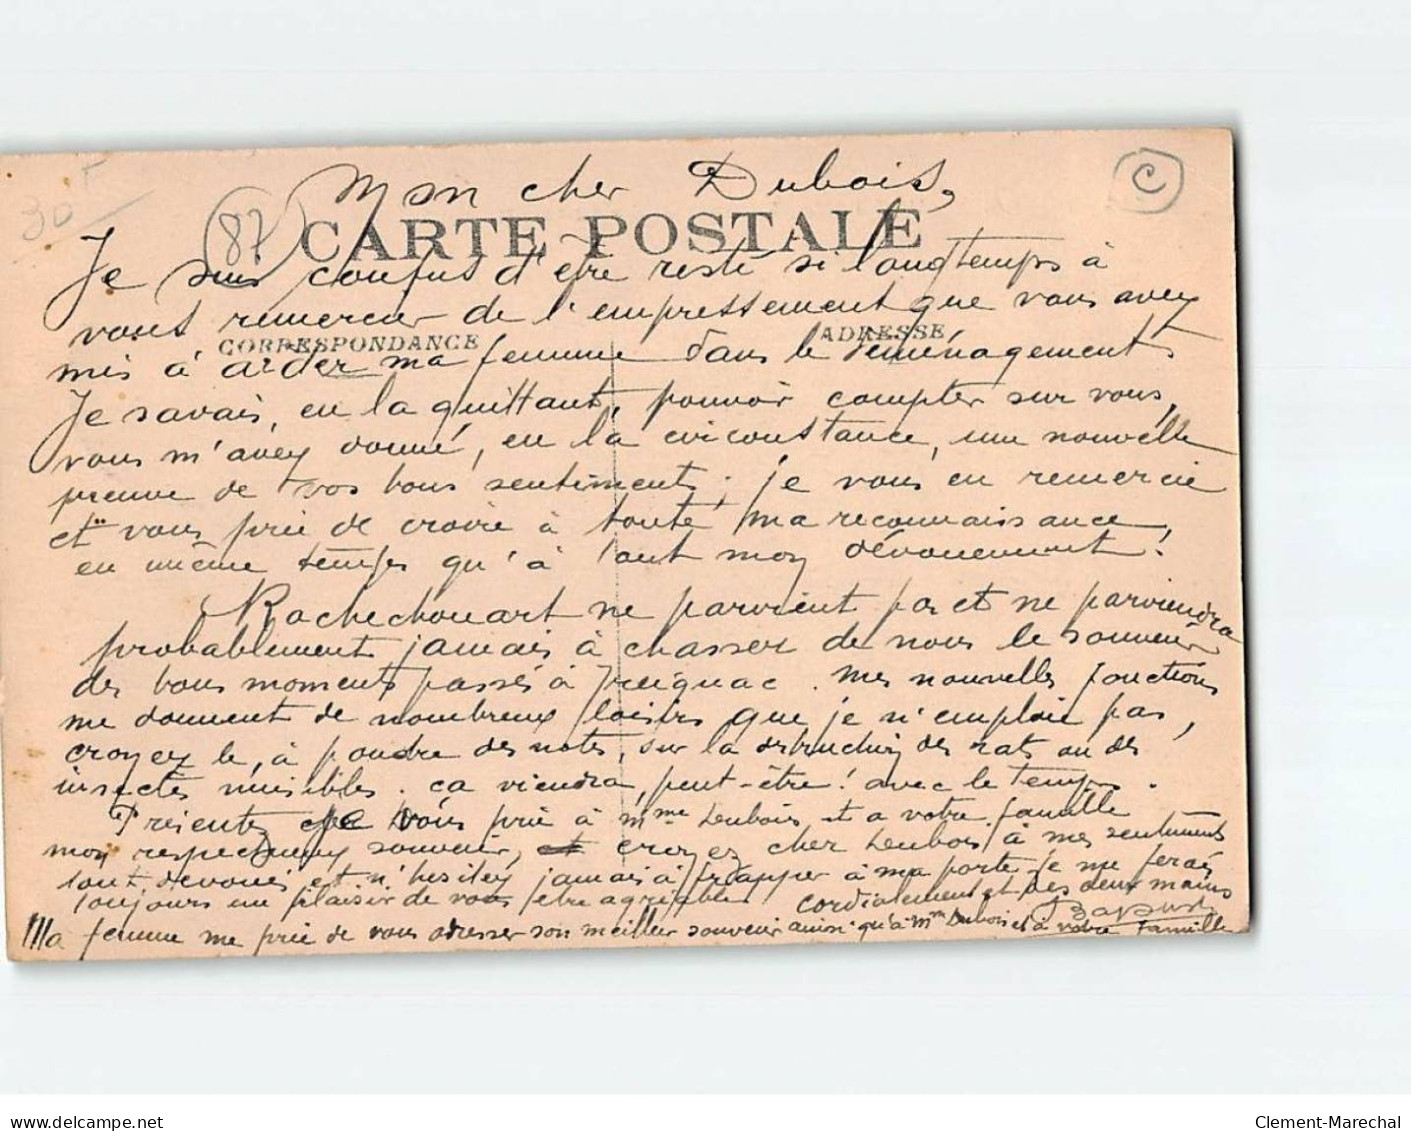 30 F
87
C
Mon cher Dubois,
CARTE POSTALE
Je suis confus d'être resté si longtemps à
vous remercier de l'empressement que vous avez
CORRESPONDANCE
ADRESSE
mis à aider ma femme dans le déménagement.
Je savais, en la quittant, pouvoir compter sur vous,
vous m'avez donné, en la circonstance, une nouvelle
preuve de vos bons sentiments ; je vous en remercie
et vous prie de croire à toute ma reconnaissance,
en même temps qu'à tout mon dévouement.
Rochechouart ne parvient pas et ne parviendra
probablement jamais à chasser de nous le souvenir
des bons moments passés à Treignac. Mes nouvelles fonctions
me donnent de nombreux loisirs que je n'emploie pas,
croyez le, à pondre des notes, sur la destruction des rats ou des
insectes nuisibles. ça viendra, peut-être ! avec le temps.
Présentez je vous prie à Mme Dubois et a votre famille
mon respectueux souvenir, croyez cher Dubois à mes sentiments
tout dévoués et n'hésitez jamais à frapper à ma porte je me ferai
toujours un plaisir de vous être agréable cordialement et des deux mains
Ma femme me prie de vous adresser son meilleur souvenir ainsi qu'à Mme Dubois et à votre famille
Clement-Marechal